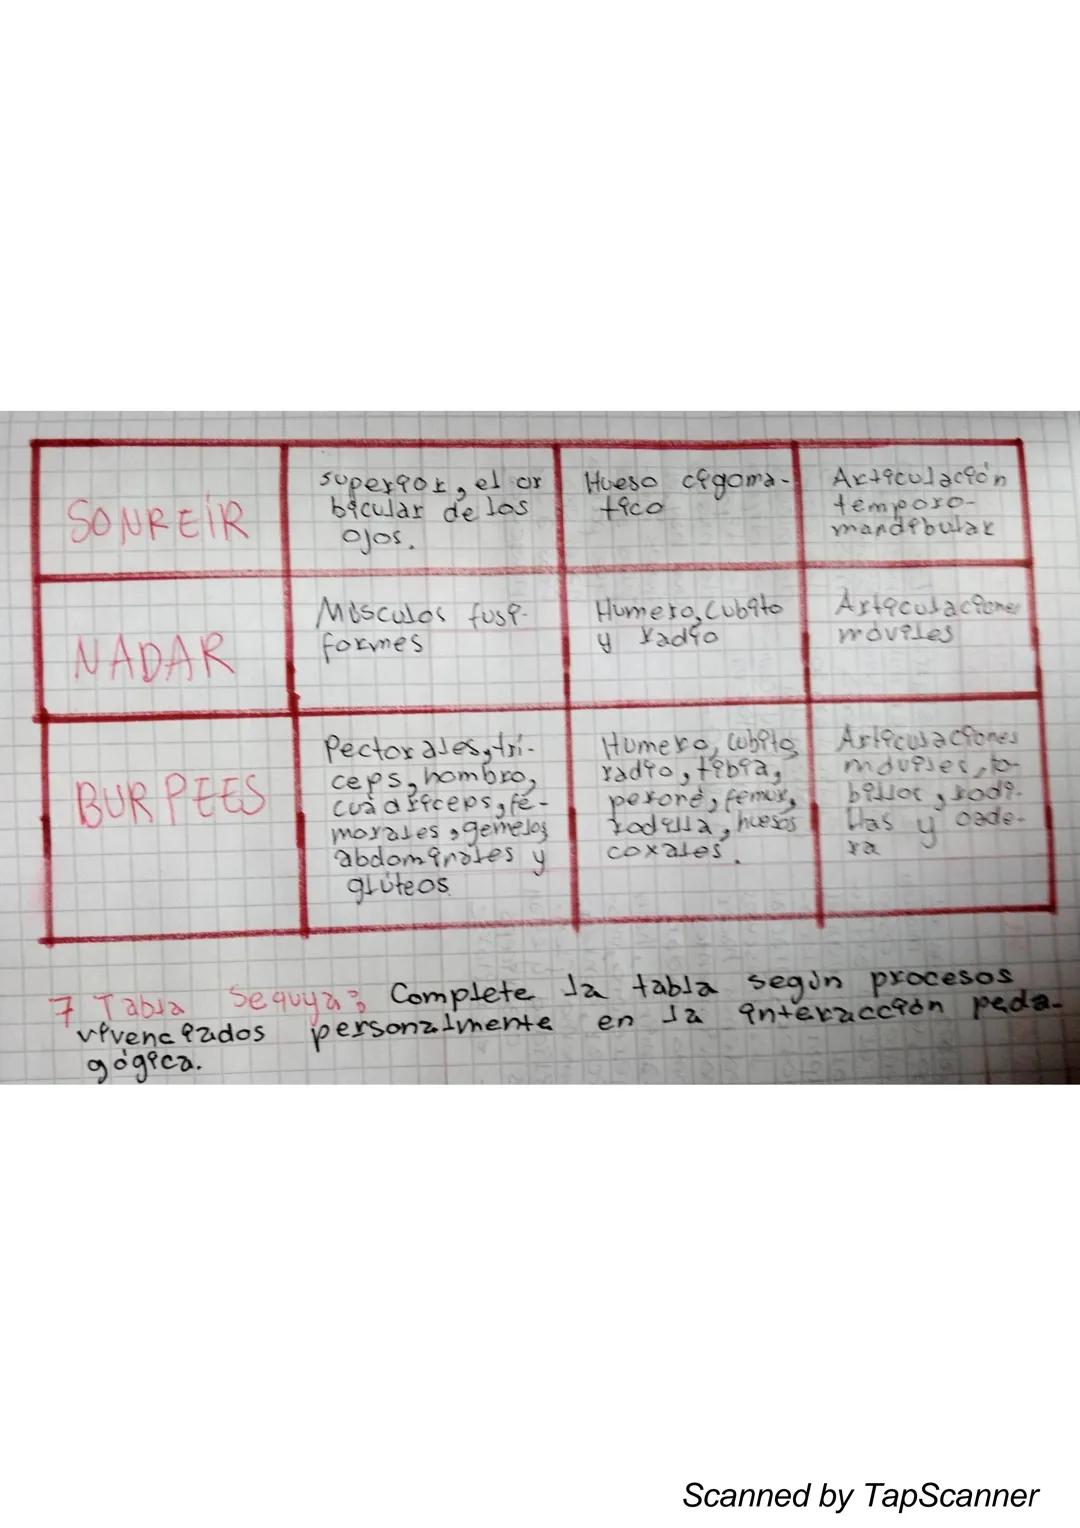 SONREÍR
superior, el or
bicular de los
ojos.
Hueso cigoma-
tico
Articulación
temporo-
mandibular
NADAR
Músculos fusi-
formes
Humero, Cubito
y radio
Articulaciones
moviles
BURPEES
Pectorales, trí-
ceps, hombro,
cuádriceps, fe-
morales, gemelos,
abdominales y
glúteos
Humero, Cubito,
radio, tibia,
peroné, femur,
rodilla, huesos
coxales.
Articulaciones
moviles, to-
billos, rodi-
llas y cade-
ra
7 Tabla Sequya: Complete la tabla según procesos
vivenciados personalmente en la interacción peda-
gógica.
Scanned by TapScanner